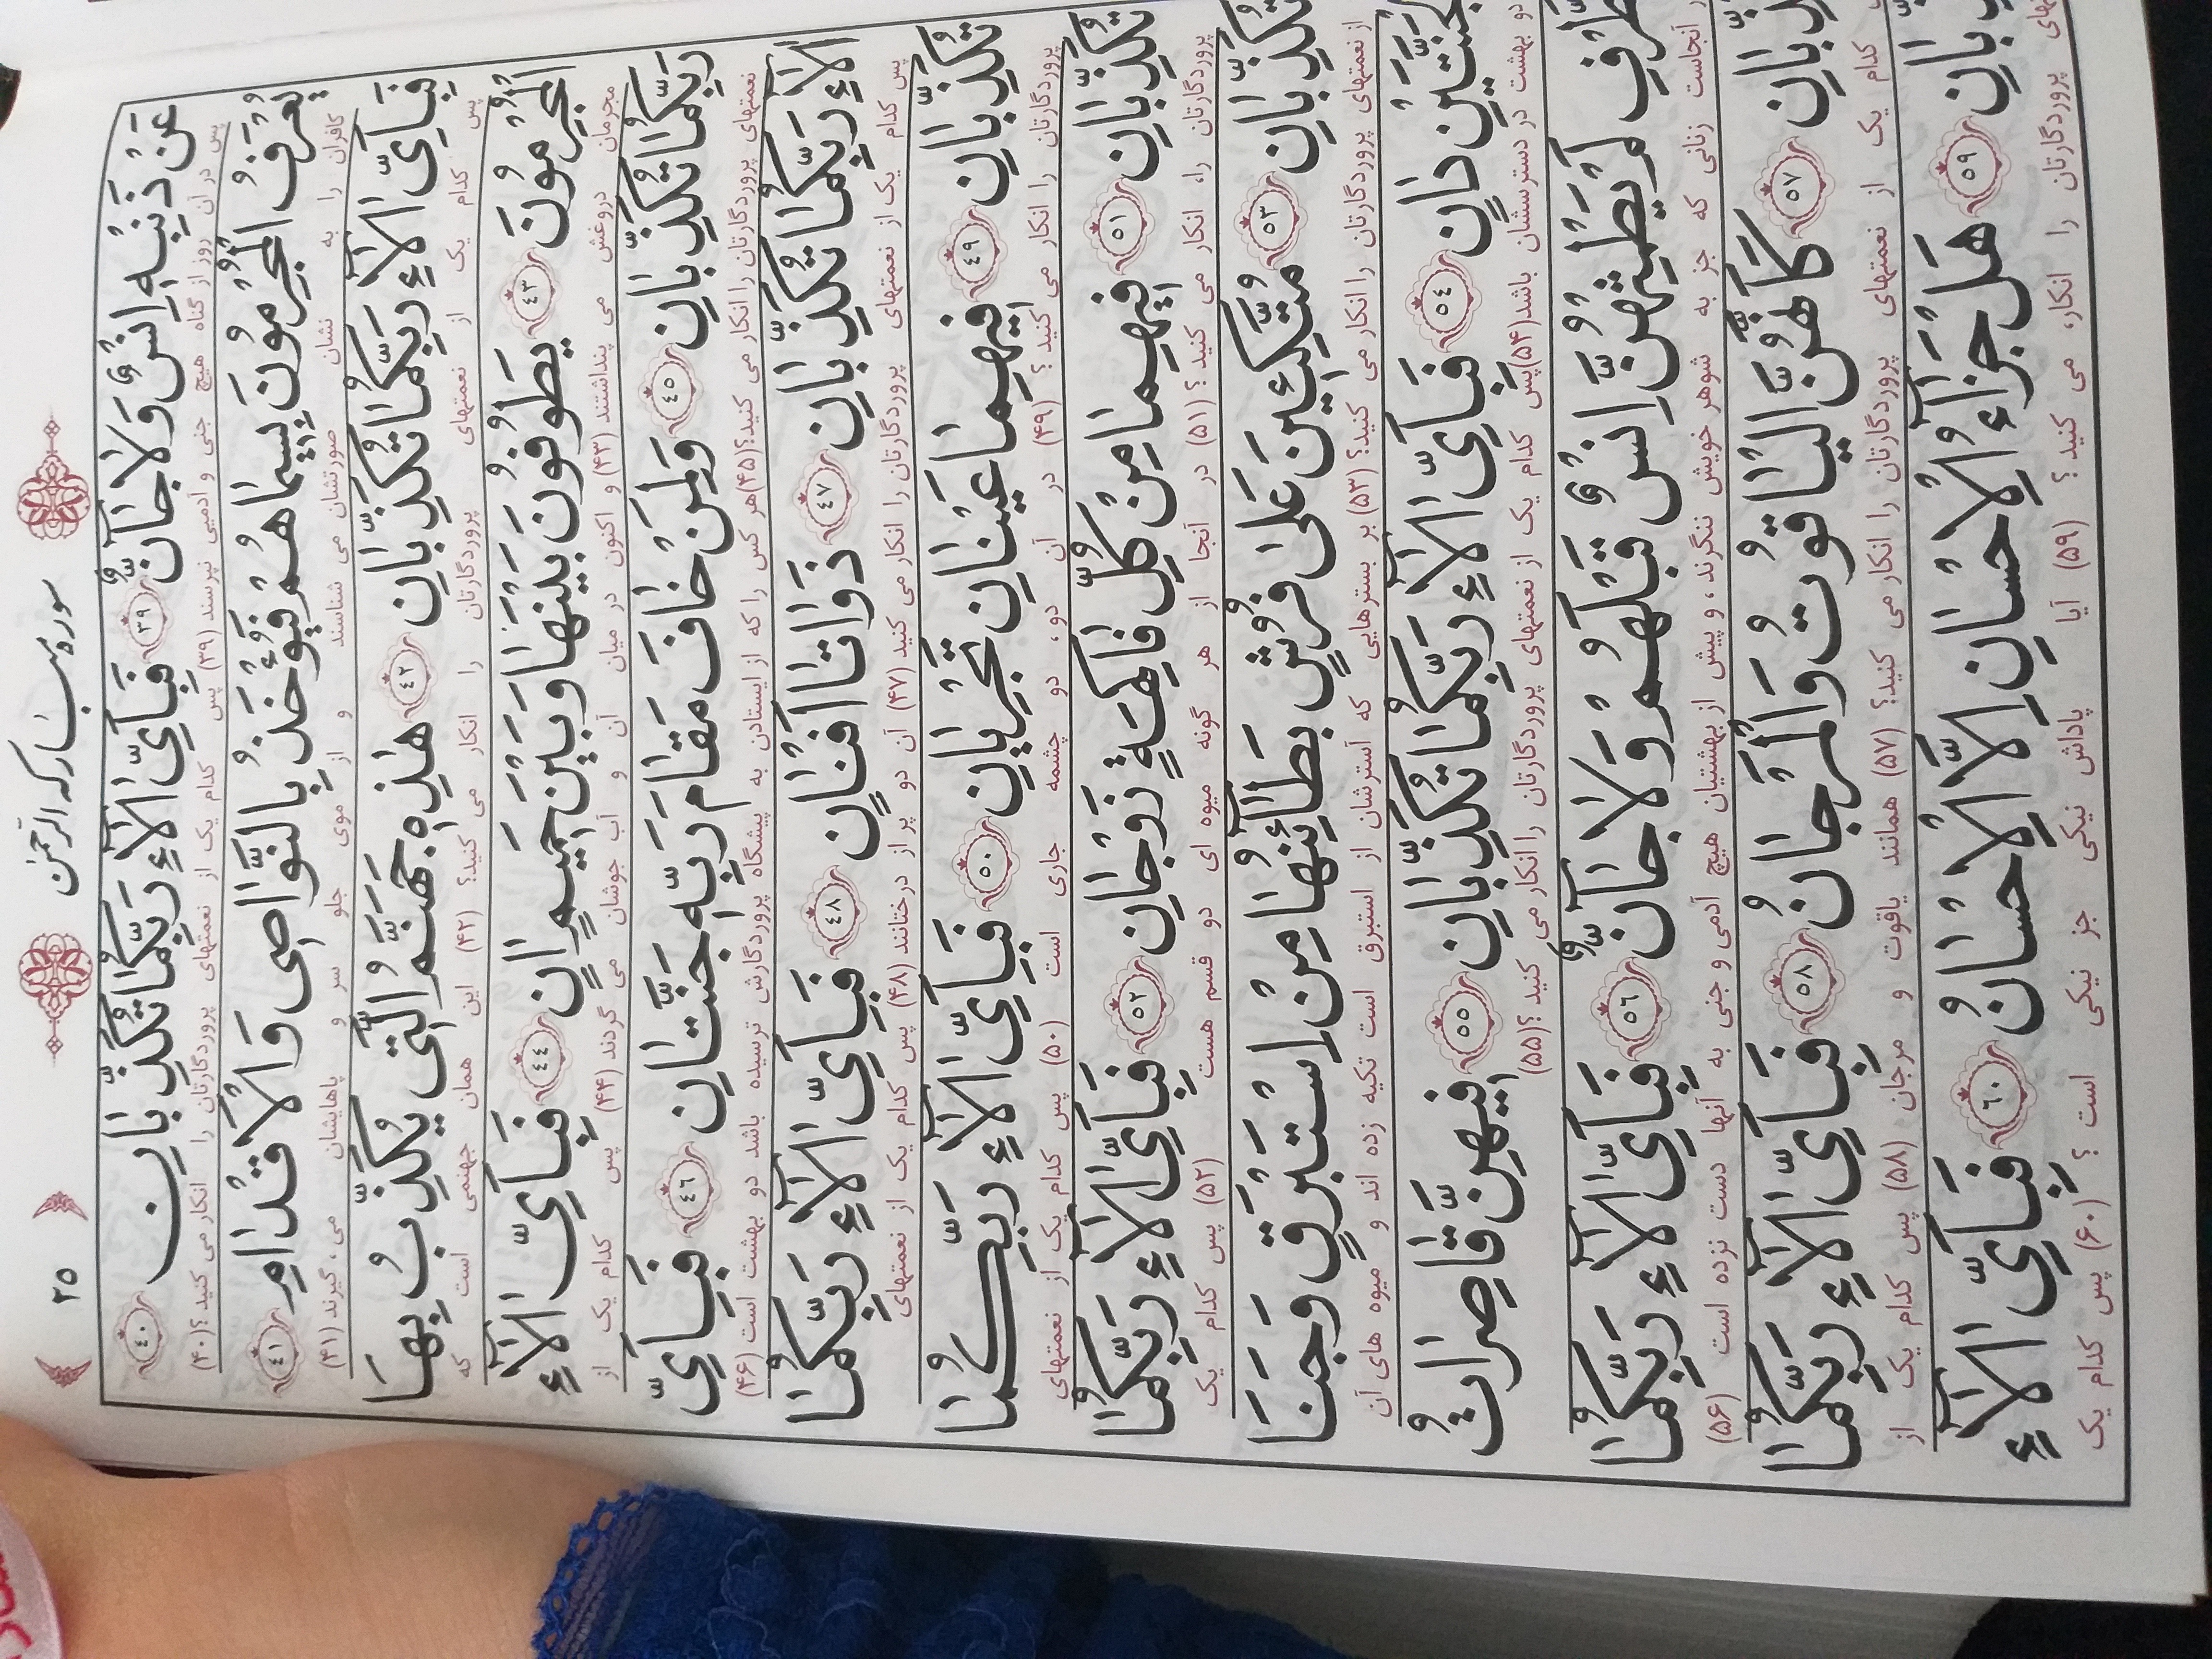 ۳۵ سوره مبارکه الرحمن
عَنْ ذَنْبِهِ اِنْسٌ وَلَا جَانٌّ ﴿٣٩﴾ فَبِاَیِّ الَآءِ رَبِّکُمَا تُکَذِّبَانِ ﴿٤٠﴾
پس در آن روز از گناه هیچ جنی و آدمیی نپرسند (۳۹) پس کدام یک از نعمتهای پروردگارتان را انکار می کنید؟(۴۰)
یُعْرَفُ الْمُجْرِمُونَ بِسِیمَاهُمْ فَیُؤْخَذُ بِالنَّوَاصِی وَالْاَقْدَامِ ﴿٤١﴾
کافران را به نشان صورتشان می شناسند و از موی جلو سر و پاهایشان می، گیرند (۴۱)
فَبِاَیِّ الَآءِ رَبِّکُمَا تُکَذِّبَانِ ﴿٤٢﴾ هٰذِهِ جَهَنَّمُ الَّتِی یُکَذِّبُ بِهَا
پس کدام یک از نعمتهای پروردگارتان را انکار می کنید؟ (۴۲) این همان جهنمی است که
الْمُجْرِمُونَ ﴿٤٣﴾ یَطُوفُونَ بَیْنَهَا وَبَیْنَ حَمِیمٍ اٰنٍ ﴿٤٤﴾ فَبِاَیِّ الَآءِ
مجرمان دروغش می پنداشتند (۴۳) و اکنون در میان آن و آب جوشان می گردند (۴۴) پس کدام یک از
رَبِّکُمَا تُکَذِّبَانِ ﴿٤٥﴾ وَلِمَنْ خَافَ مَقَامَ رَبِّهِ جَنَّتَانِ ﴿٤٦﴾ فَبِاَیِّ
نعمتهای پروردگارتان را انکار می کنید؟(۴۵)هر کس را که از ایستادن به پیشگاه پروردگارش ترسیده باشد دو بهشت است (۴۶)
الَآءِ رَبِّکُمَا تُکَذِّبَانِ ﴿٤٧﴾ ذَوَاتَا اَفْنَانٍ ﴿٤٨﴾ فَبِاَیِّ الَآءِ رَبِّکُمَا
پس کدام یک از نعمتهای پروردگارتان را انکار می کنید (۴۷) آن دو پر از درختانند (۴۸) پس کدام یک از نعمتهای
تُکَذِّبَانِ ﴿٤٩﴾ فِیهِمَا عَیْنَانِ تَجْرِیَانِ ﴿٥٠﴾ فَبِاَیِّ الَآءِ رَبِّکُمَا
پروردگارتان را انکار می کنید ؟ (۴۹) در آن دو ، دو چشمه جاری است (۵۰) پس کدام یک از نعمتهای
تُکَذِّبَانِ ﴿٥١﴾ فِیهِمَا مِنْ کُلِّ فَاکِهَةٍ زَوْجَانِ ﴿٥٢﴾ فَبِاَیِّ الَآءِ رَبِّکُمَا
پروردگارتان را، انکار می کنید ؟ (۵۱) در آنجا از هر گونه میوه ای دو قسم هست (۵۲) پس کدام یک
تُکَذِّبَانِ ﴿٥٣﴾ مُتَّکِئِینَ عَلٰی فُرُشٍ بَطَآئِنُهَا مِنْ اِسْتَبْرَقٍ وَجَنَا
از نعمتهای پروردگارتان را انکار می کنید؟ (۵۳) بر بسترهایی که آسترشان از استبرق است تکیه زده اند و میوه های آن
الْجَنَّتَیْنِ دَانٍ ﴿٥٤﴾ فَبِاَیِّ الَآءِ رَبِّکُمَا تُکَذِّبَانِ ﴿٥٥﴾ فِیهِنَّ قَاصِرَاتُ
دو بهشت در دسترسشان باشد(۵۴)پس کدام یک از نعمتهای پروردگارتان را انکار می کنید ؟(۵۵)
الطَّرْفِ لَمْ یَطْمِثْهُنَّ اِنْسٌ قَبْلَهُمْ وَلَا جَانٌّ ﴿٥٦﴾ فَبِاَیِّ الَآءِ رَبِّکُمَا
آنجاست زنانی که جز به شوهر خویش ننگرند ، و پیش از بهشتیان هیچ آدمی و جنی به آنها دست نزده است (۵۶)
تُکَذِّبَانِ ﴿٥٧﴾ کَاَنَّهُنَّ الْیَاقُوتُ وَالْمَرْجَانُ ﴿٥٨﴾ فَبِاَیِّ الَآءِ رَبِّکُمَا
کدام یک از نعمتهای پروردگارتان را انکار می کنید؟ (۵۷) همانند یاقوت و مرجان (۵۸) پس کدام یک از
بَانِ ﴿٥٩﴾ هَلْ جَزَآءُ الْاِحْسَانِ اِلَّا الْاِحْسَانُ ﴿٦٠﴾ فَبِاَیِّ الَآءِ
پروردگارتان را انکار، می کنید ؟ (۵۹) آیا پاداش نیکی جز نیکی است ؟ (۶۰) پس کدام یک